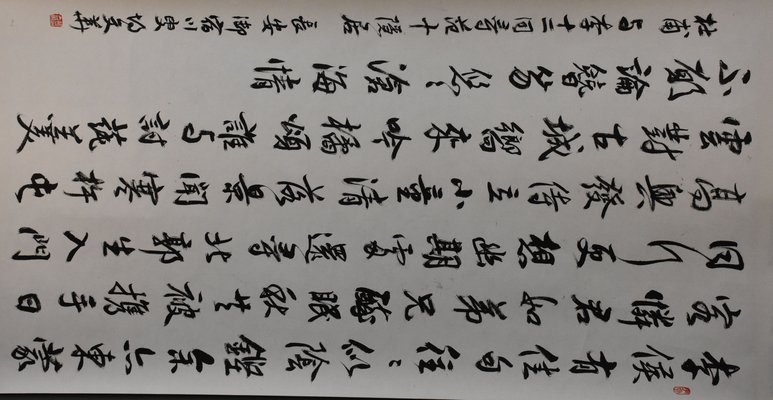 李侯有佳句往々似陰鏗余亦東蒙
客憐君如弟兄醉眠秋共被携手日
同行更想幽期處還尋北郭生入門
高興發侍立小童清落景聞寒杵屯
雲對古城嚮來吟橘頌誰与討蓴羹
不願論簪笏悠々滄海情
杜甫与李十二同尋范十隱居 長安御宿川叟